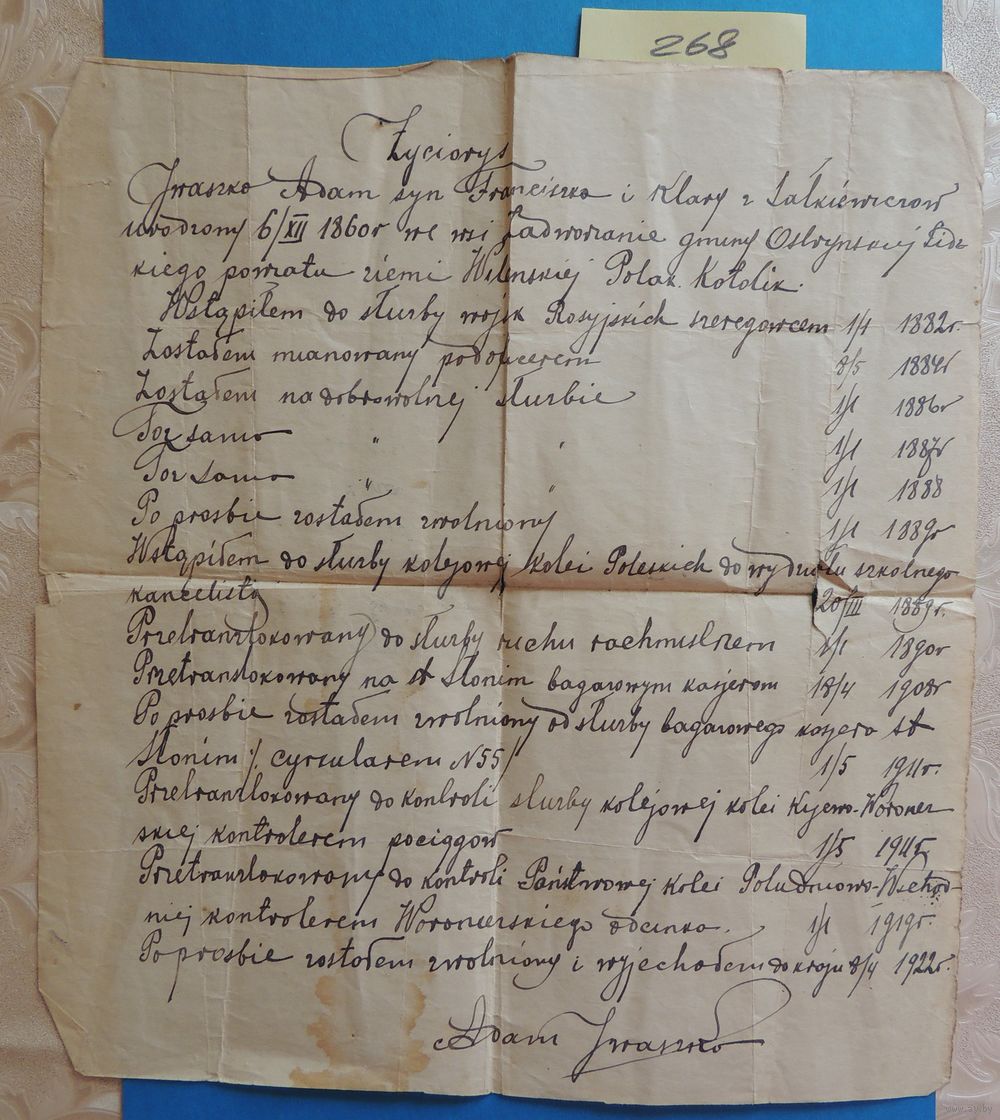 268
Życiorys
Iwaszko Adam syn Franciszka i Klary z Sałkiewiczów
urodzony 6/XII 1860r we wsi Zadworzanie gminy Ostrynskiej Lidz
kiego powiatu ziemi Wilenskiej Polak. Katolik.
Wstąpiłem do służby wojsk Rosyjskich szeregowcem 1/1 1882r.
Zostałem mianowany podoficerem 8/5 1884r
Zostałem na dobrowolnej służbie 1/1 1886r
Toż samo " " 1/1 1887r
Toż samo " " 1/1 1888
Po prosbie zostałem zwolniony 1/1 1889r
Wstąpiłem do służby kolejowej kolei Poleskich do wydziału szkolnego
kancelistą 20/III 1889r.
Przetranzlokowany do służby ruchu rachmistrzem 1/1 1890r
Przetranslokowany na st Słonim bagażowym kasjerom 18/4 1908r
Po prosbie zostałem zwolniony od służby bagażowego kasjera st
Słonim /. cyrcularem N 55/ 1/5 1911r.
Przetranzlokowany do kontroli służby kolejowej kolei Kijewo-Woroneż
skiej kontrolerem pociągów 1/5
Przetranzlokowany do kontroli Państwowej Kolei Południowo-Wschod-
niej kontrolerem Woroneżskiego odcinka. 1/1 1919r.
Po prosbie zostałem zwolniony i wyjechałem do kraju 8/4 1922r.
Adam Iwaszko
www.ay.by